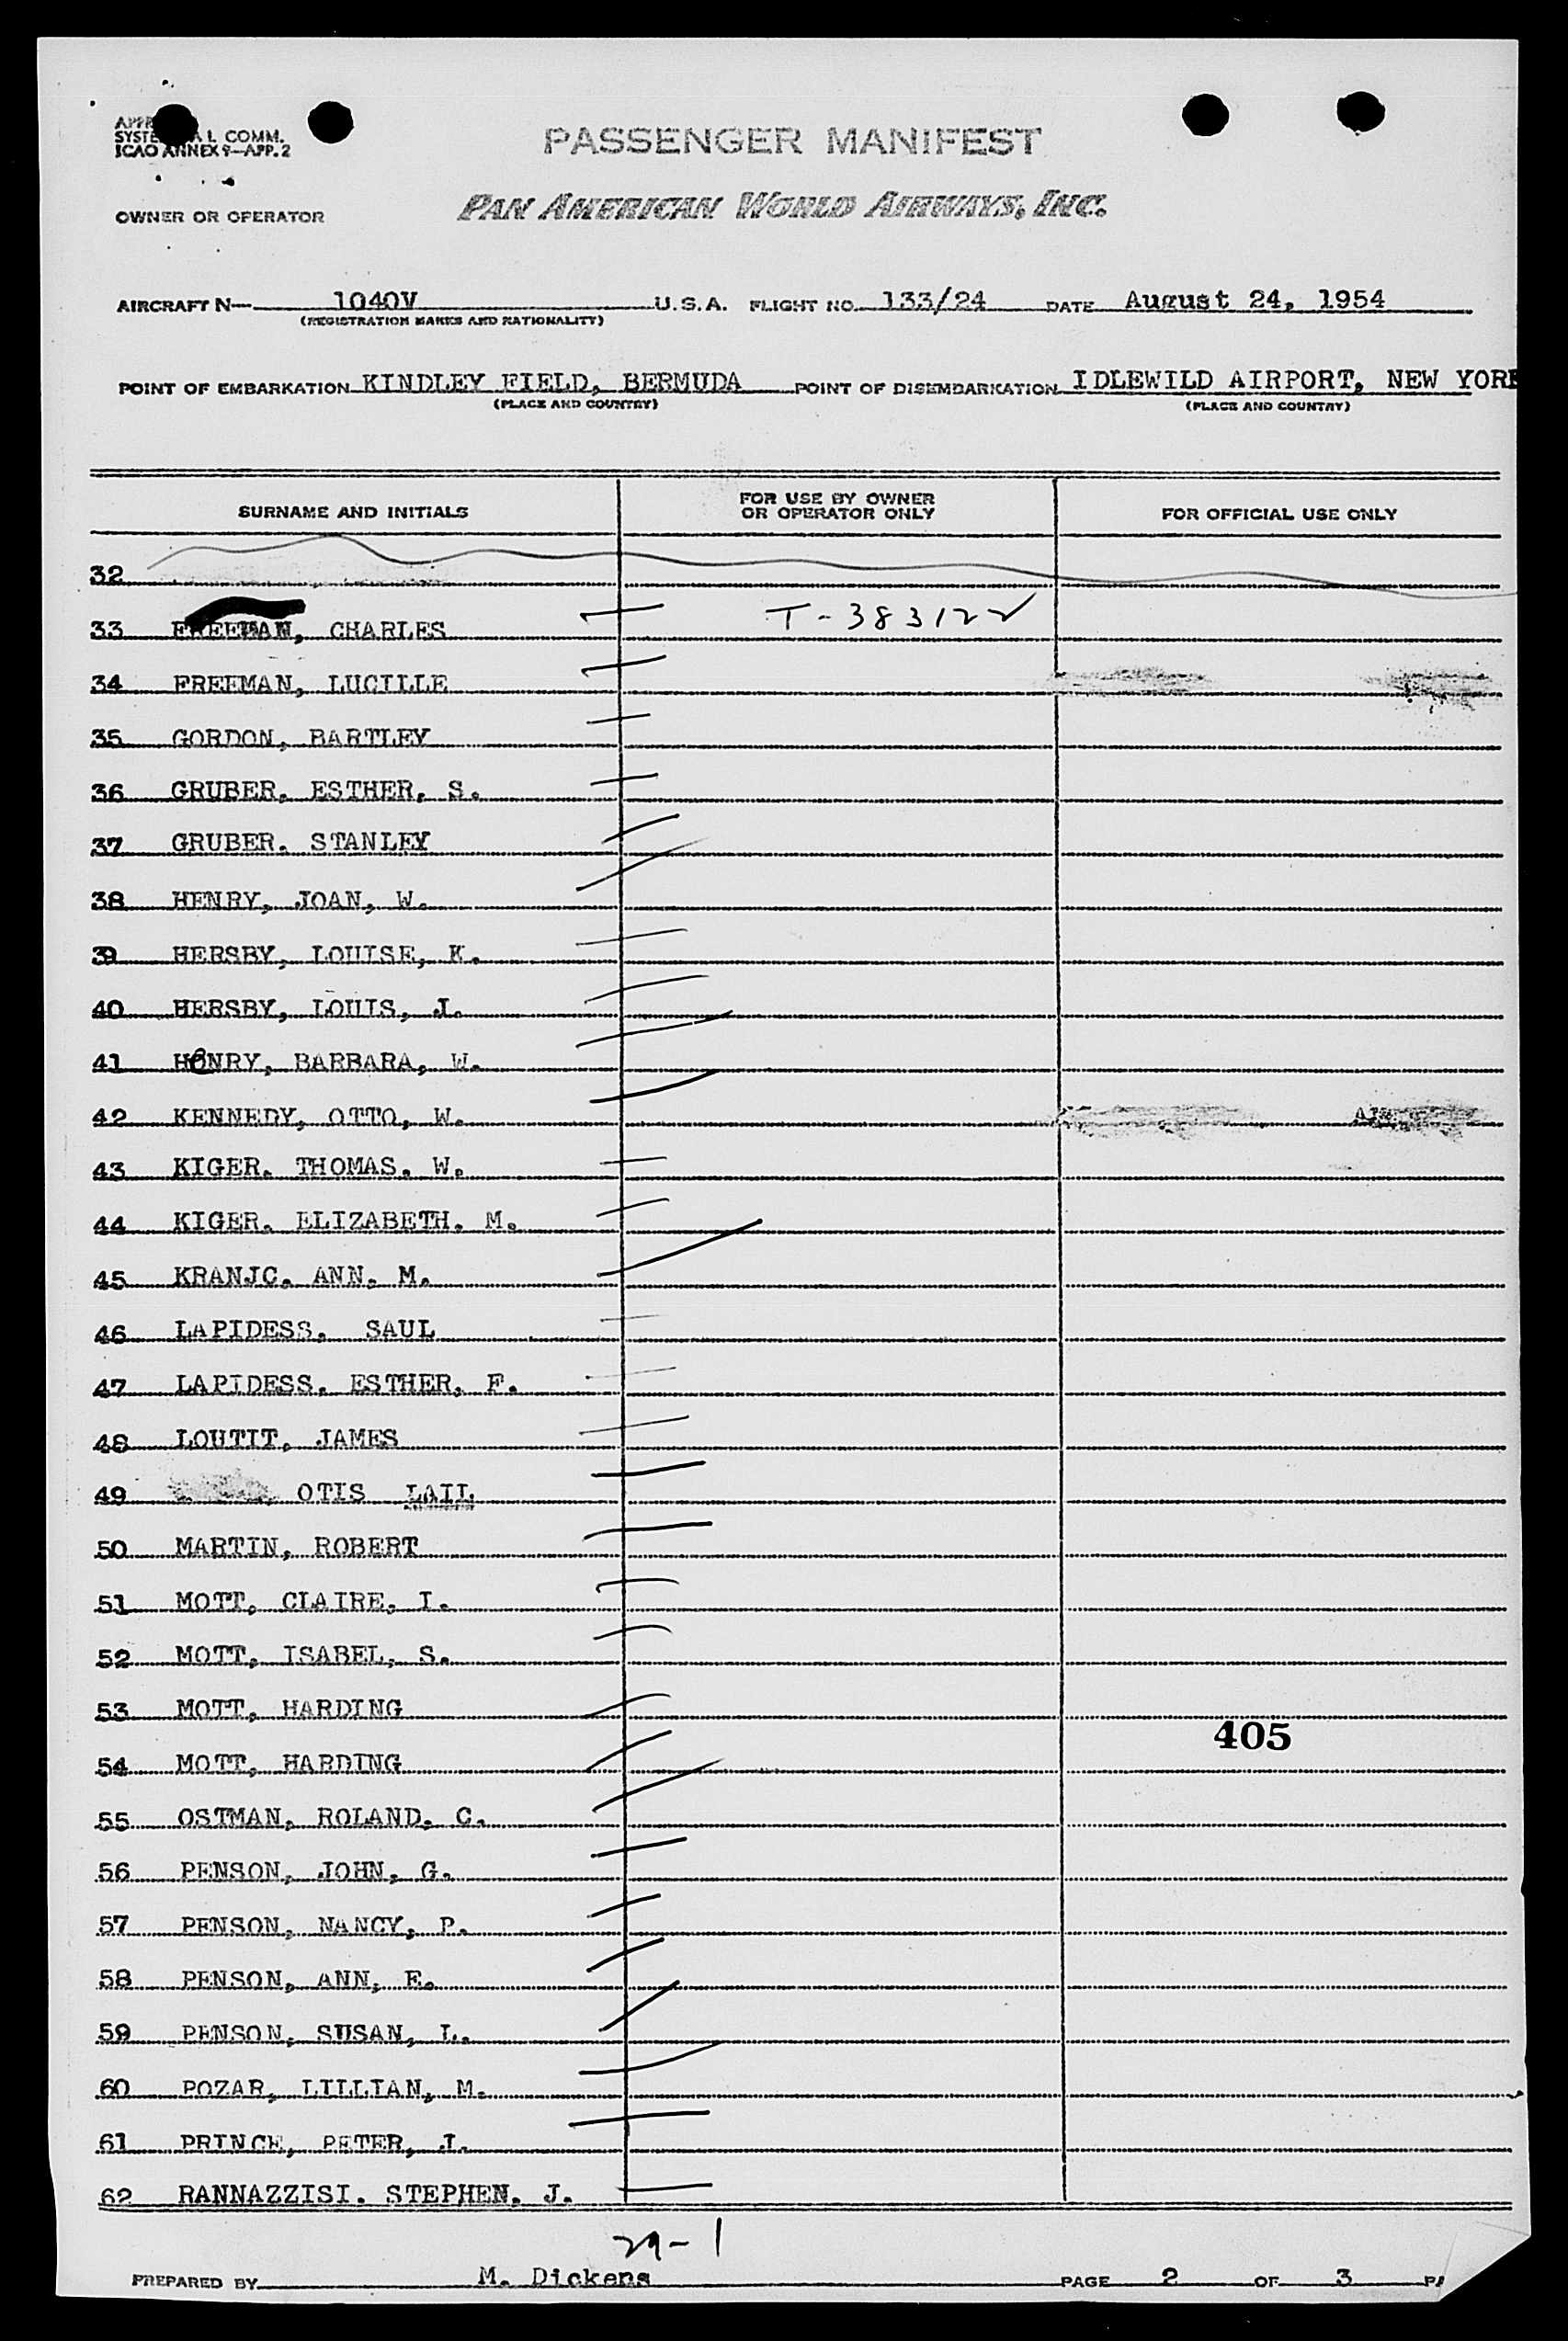 SYSTE L COMM.
ICAO ANNEX 9—APP. 2
PASSENGER MANIFEST
OWNER OR OPERATOR PAN AMERICAN WORLD AIRWAYS, INC.
AIRCRAFT N— 1040V U.S.A. FLIGHT NO. 133/24 DATE August 24, 1954
(REGISTRATION MARKS AND NATIONALITY)
POINT OF EMBARKATION KINDLEY FIELD, BERMUDA POINT OF DISEMBARKATION IDLEWILD AIRPORT, NEW YORK
(PLACE AND COUNTRY) (PLACE AND COUNTRY)
SURNAME AND INITIALS FOR USE BY OWNER OR OPERATOR ONLY FOR OFFICIAL USE ONLY
32
33 FREEMAN, CHARLES T-383122
34 FREEMAN, LUCILLE
35 GORDON, BARTLEY
36 GRUBER, ESTHER, S.
37 GRUBER, STANLEY
38 HENRY, JOAN, W.
39 HERSBY, LOUISE, K.
40 HERSBY, LOUIS, J.
41 HENRY, BARBARA, W.
42 KENNEDY, OTTO, W.
43 KIGER, THOMAS, W.
44 KIGER, ELIZABETH, M.
45 KRANJC, ANN, M.
46 LAPIDESS, SAUL
47 LAPIDESS, ESTHER, F.
48 LOUTIT, JAMES
49 OTIS LAIL
50 MARTIN, ROBERT
51 MOTT, CLAIRE, I.
52 MOTT, ISABEL, S.
53 MOTT, HARDING
405
54 MOTT, HARDING
55 OSTMAN, ROLAND, C.
56 PENSON, JOHN, G.
57 PENSON, NANCY, P.
58 PENSON, ANN, E.
59 PENSON, SUSAN, L.
60 POZAR, LILLIAN, M.
61 PRINCE, PETER, J.
62 RANNAZZISI, STEPHEN, J.
29-1
PREPARED BY M. Dickens PAGE 2 OF 3